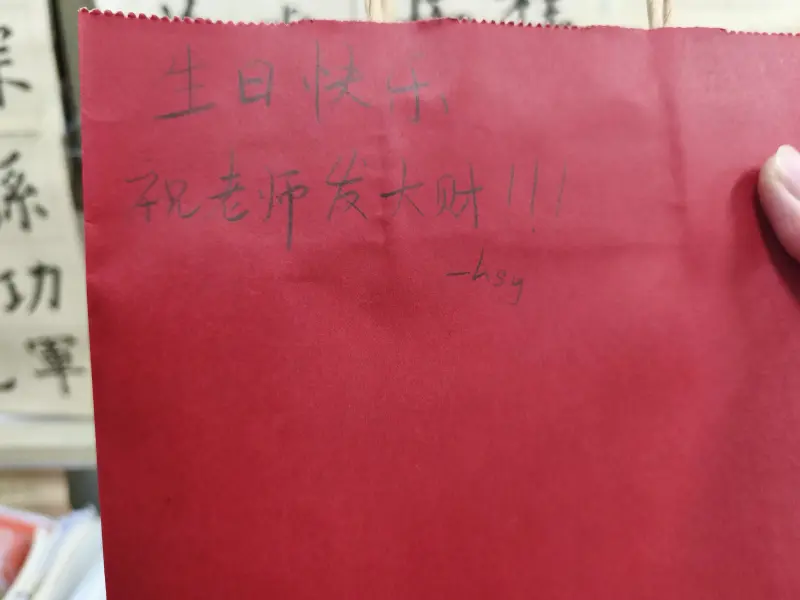 生日快乐
祝老师发大财!!!
-hsy
孫
功
軍